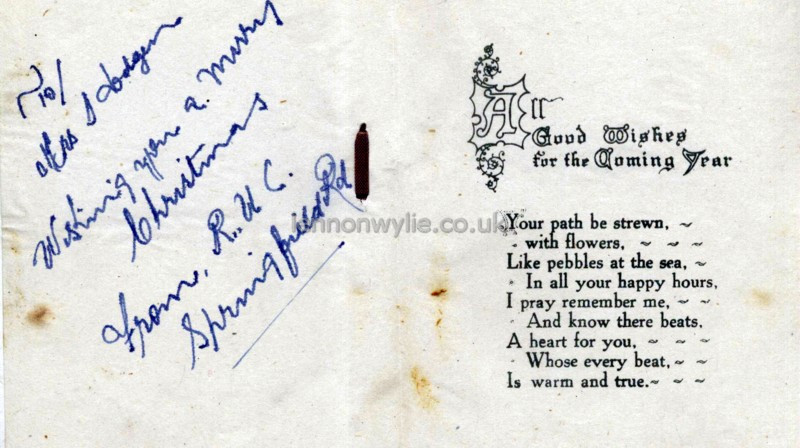 To/
Mrs D Hodgen
Wishing you a Merry
Christmas
From, R. U C.
Springfield Rd
All
Good Wishes
for the Coming Year
Your path be strewn, ~
with flowers, ~ ~ ~
Like pebbles at the sea, ~
In all your happy hours,
I pray remember me, ~ ~
And know there beats,
A heart for you, ~ ~ ~
Whose every beat, ~ ~
Is warm and true. ~ ~ ~
lennonwylie.co.uk